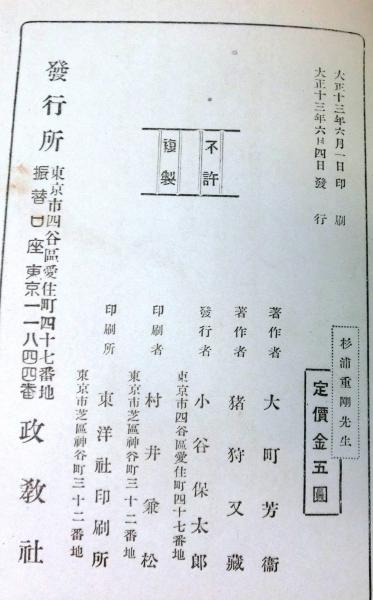 大正十三年六月一日印刷
大正十三年六月四日發行
不許
複製
杉浦重剛先生
定價金五圓
著作者 大町芳衞
著作者 猪狩又藏
發行者 小谷保太郎
東京市四谷區愛住町四十七番地
印刷者 村井兼松
東京市芝區神谷町三十二番地
印刷所 東洋社印刷所
東京市芝區神谷町三十二番地
發行所 政敎社
東京市四谷區愛住町四十七番地
振替口座東京一一八四四番